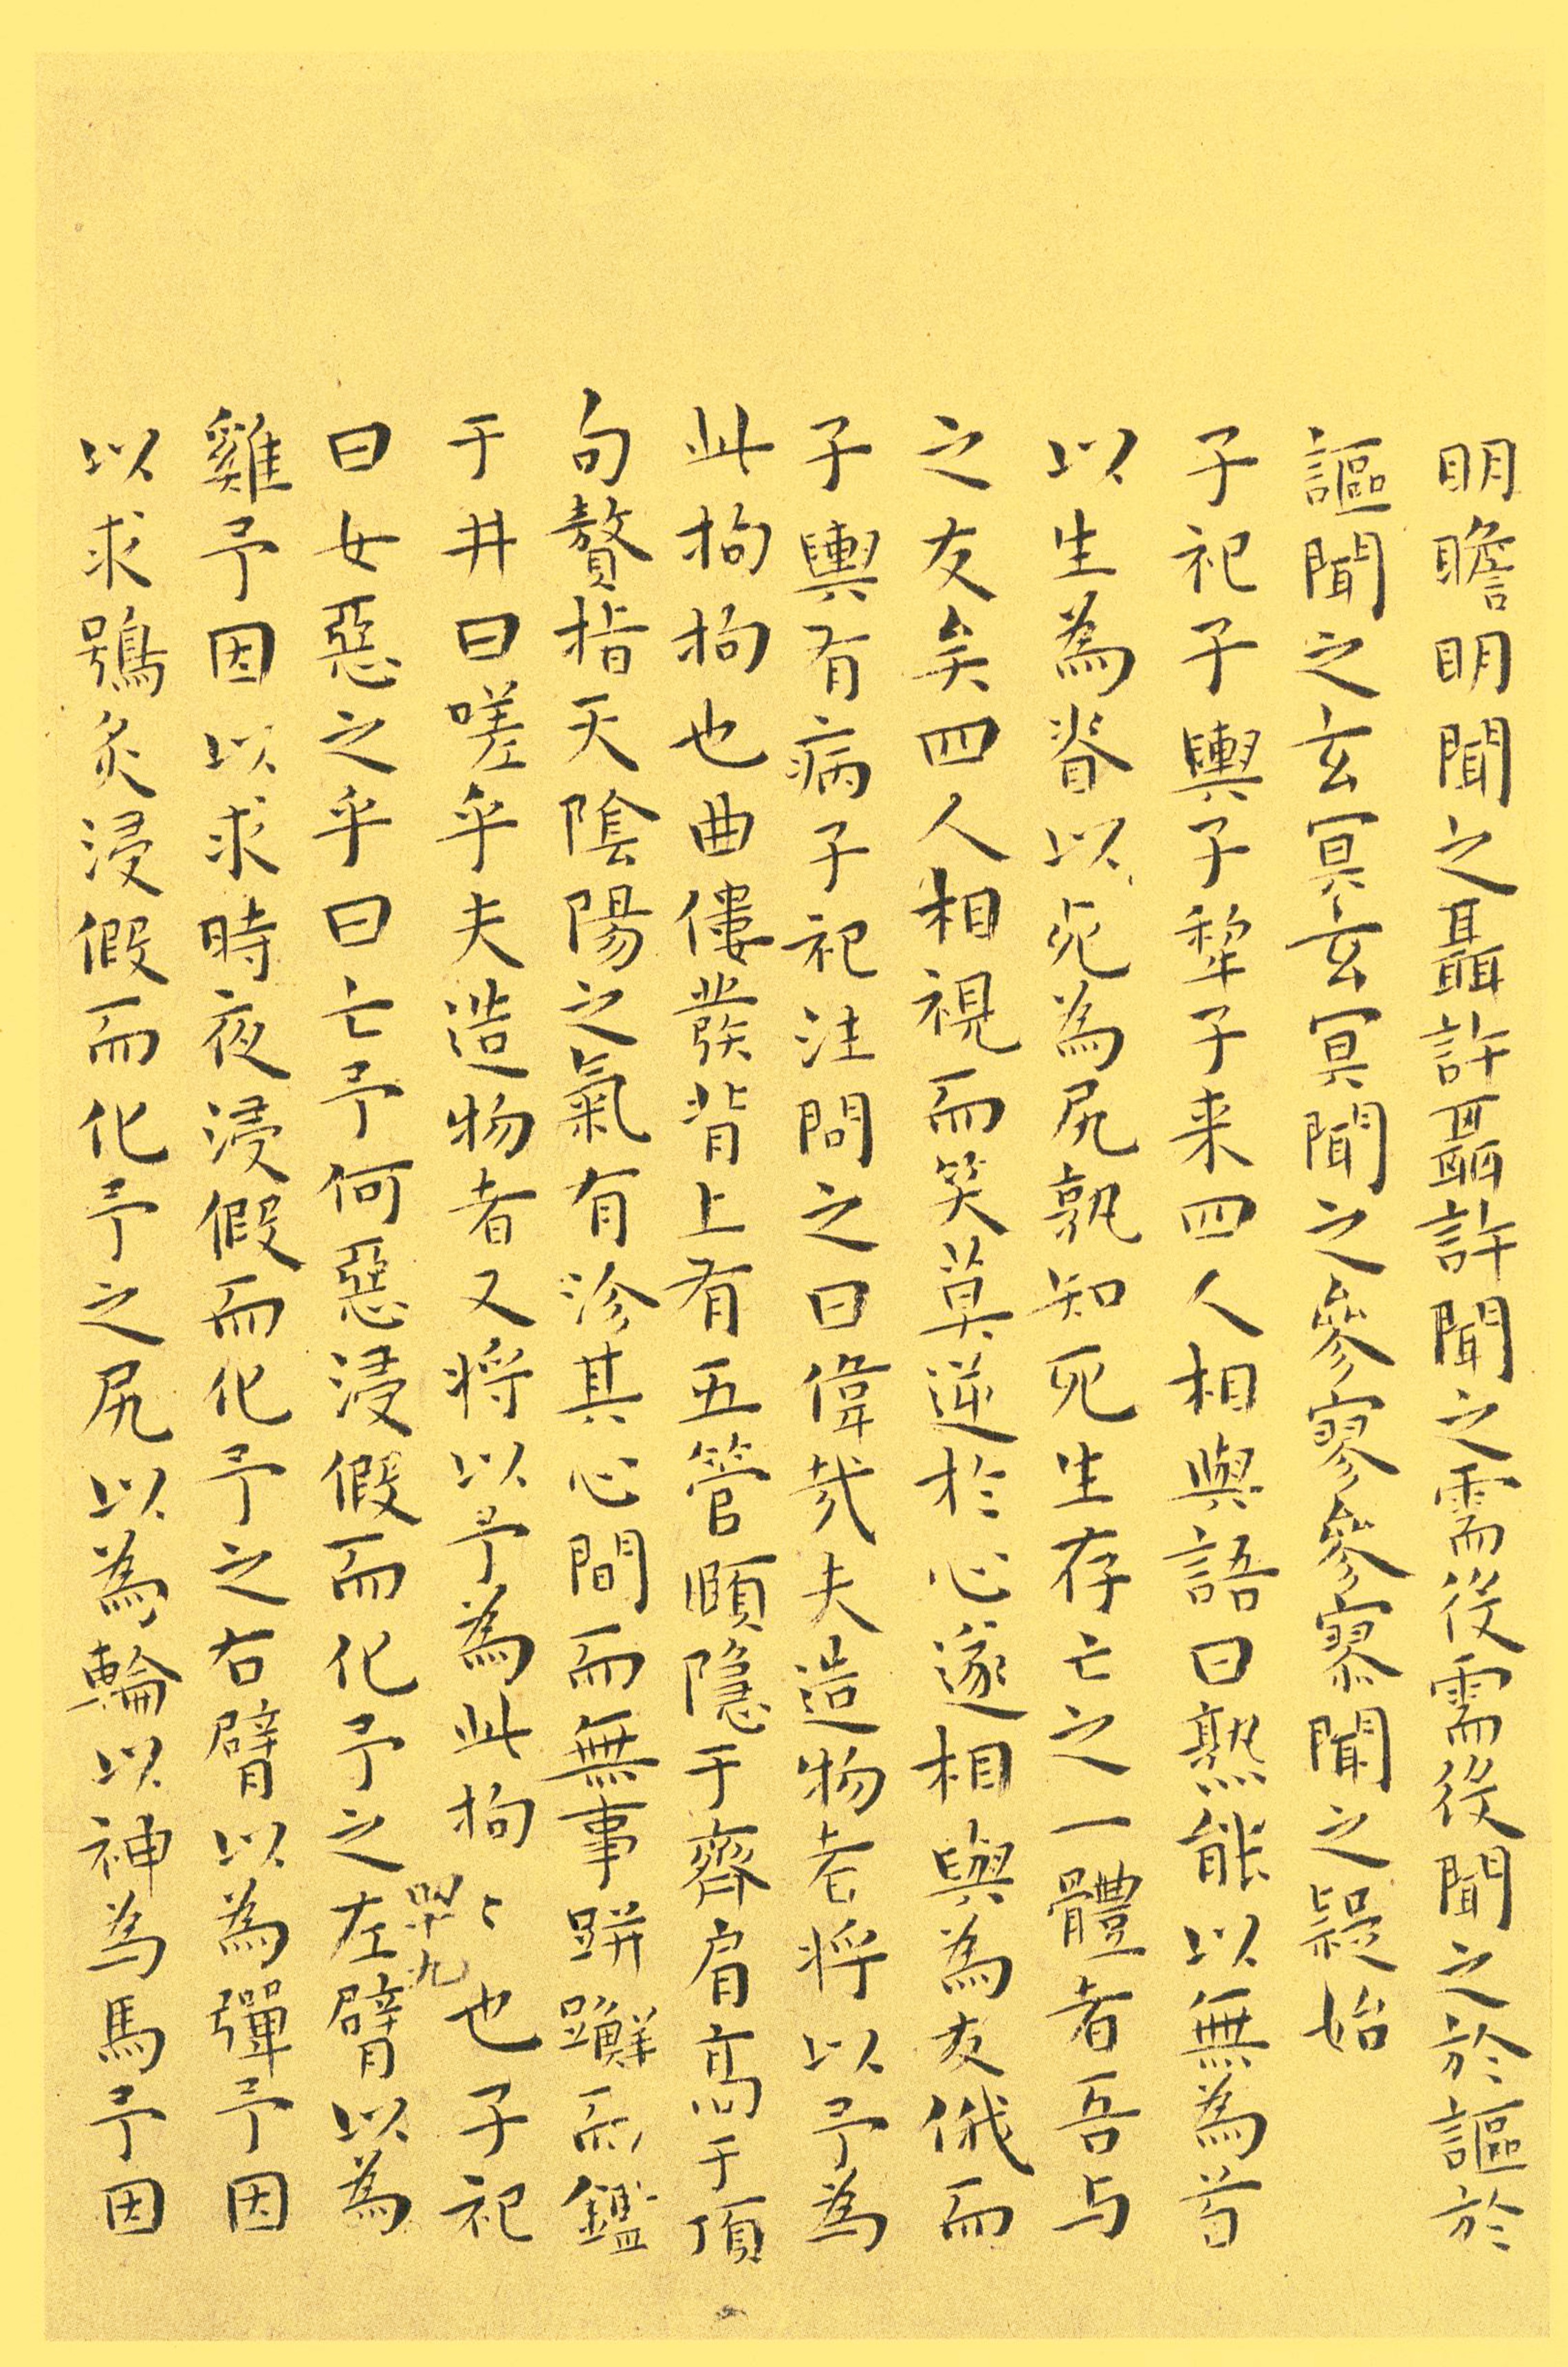 明瞻明聞之聶許聶許聞之需役需役聞之於謳於
謳聞之玄冥玄冥聞之參寥參寥聞之疑始
子祀子輿子犂子来四人相與語曰孰能以無為首
以生為脊以死為尻孰知死生存亡之一體者吾与
之友矣四人相視而笑莫逆於心遂相與為友俄而
子輿有病子祀往問之曰偉哉夫造物者将以予為
此拘拘也曲僂發背上有五管頤隱于齊肩高于頂
句贅指天陰陽之氣有沴其心間而無事跰𨇤而鑑
于井曰嗟乎夫造物者又将以予為此拘〻也子祀
曰女惡之乎曰亡予何惡浸假而化予之左臂以為
雞予因以求時夜浸假而化予之右臂以為彈予因
以求鴞炙浸假而化予之尻以為輪以神為馬予因